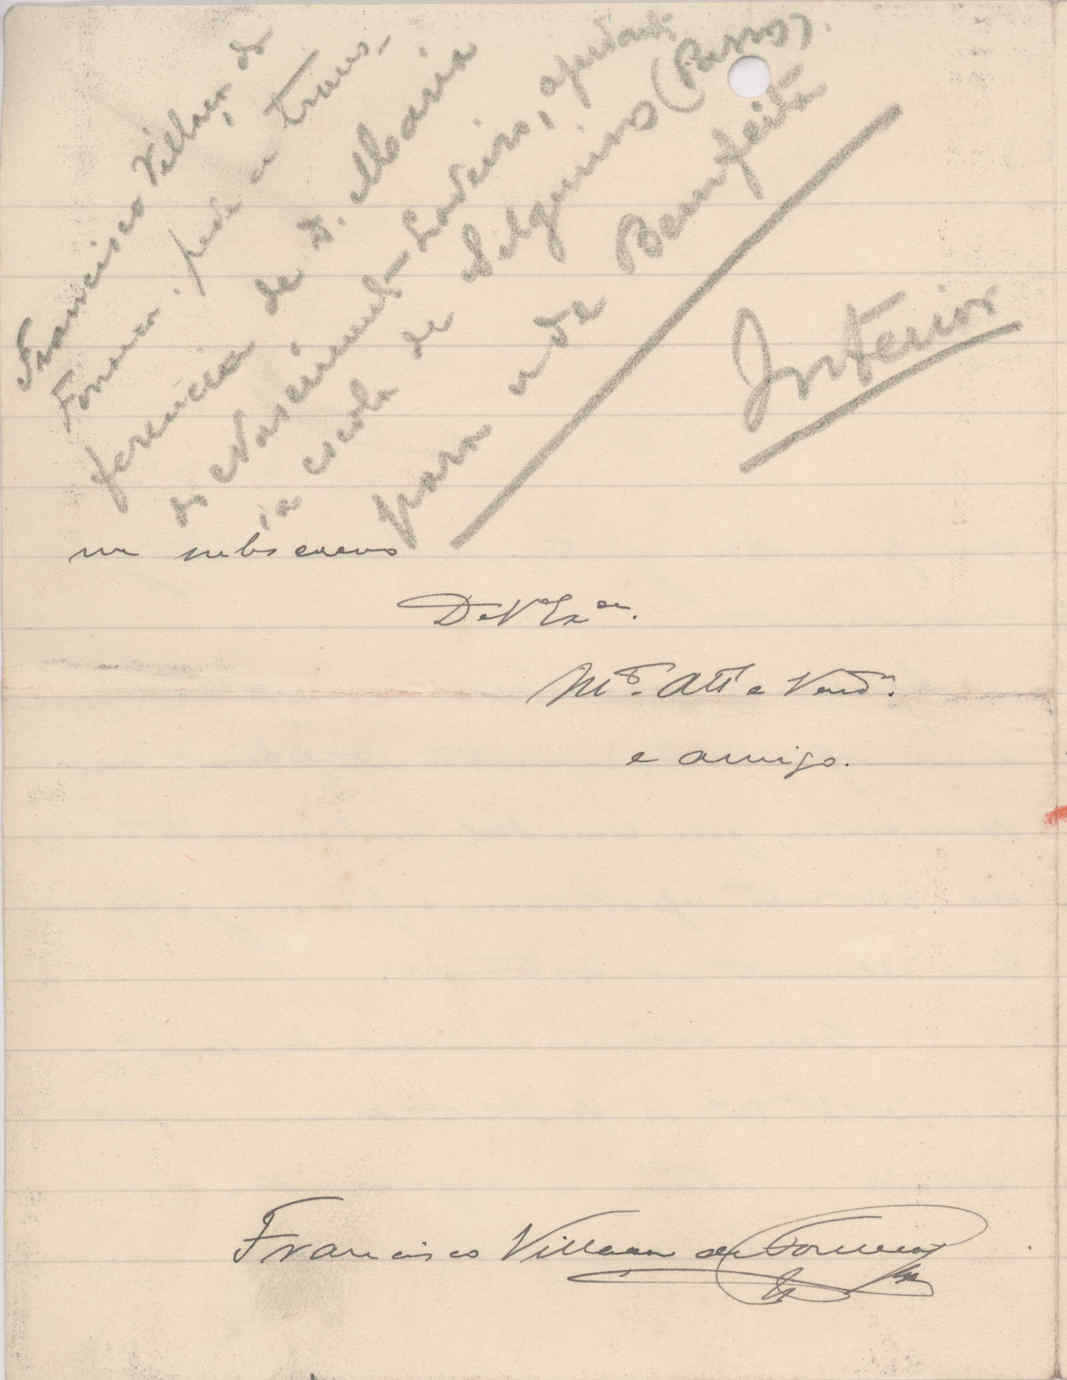 Francisco Villaça, da
Fonseca, pede a trans-
ferencia de D. Maria
do Nascimento Loureiro, ajudante
da escola de Silgueiros
para a de Bemfeita
Interior
me subscrevo
De V.ª Ex.ª
M.to Att.º e Vend.or
e amigo.
Francisco Villaça da Fonseca